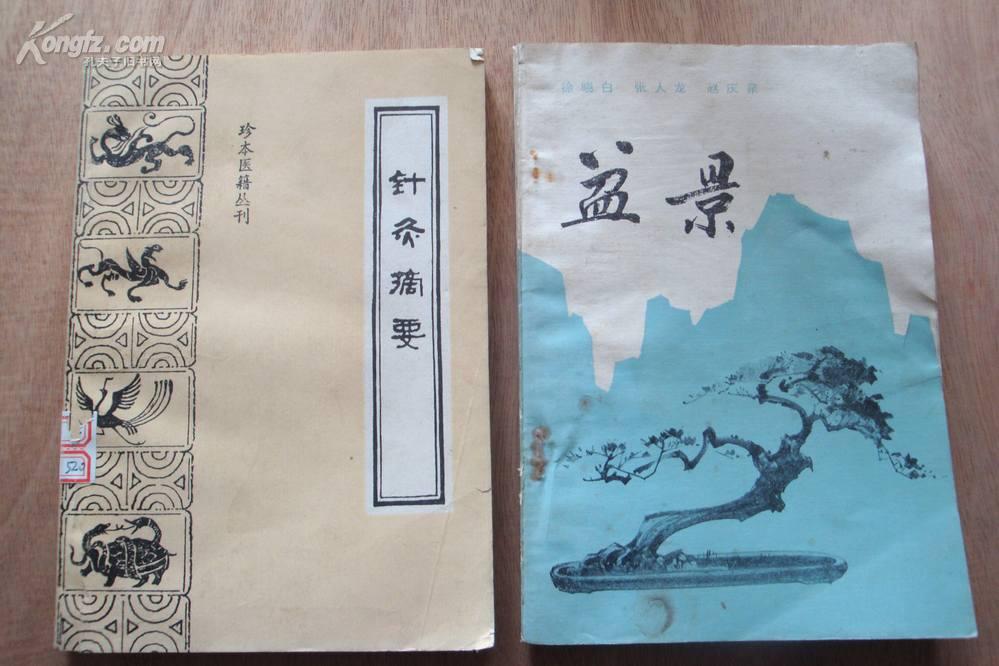 Kongfz.com
孔夫子旧书网
珍本医籍丛刊
针灸摘要
520
徐晓白 张人龙 赵庆泉
盆景